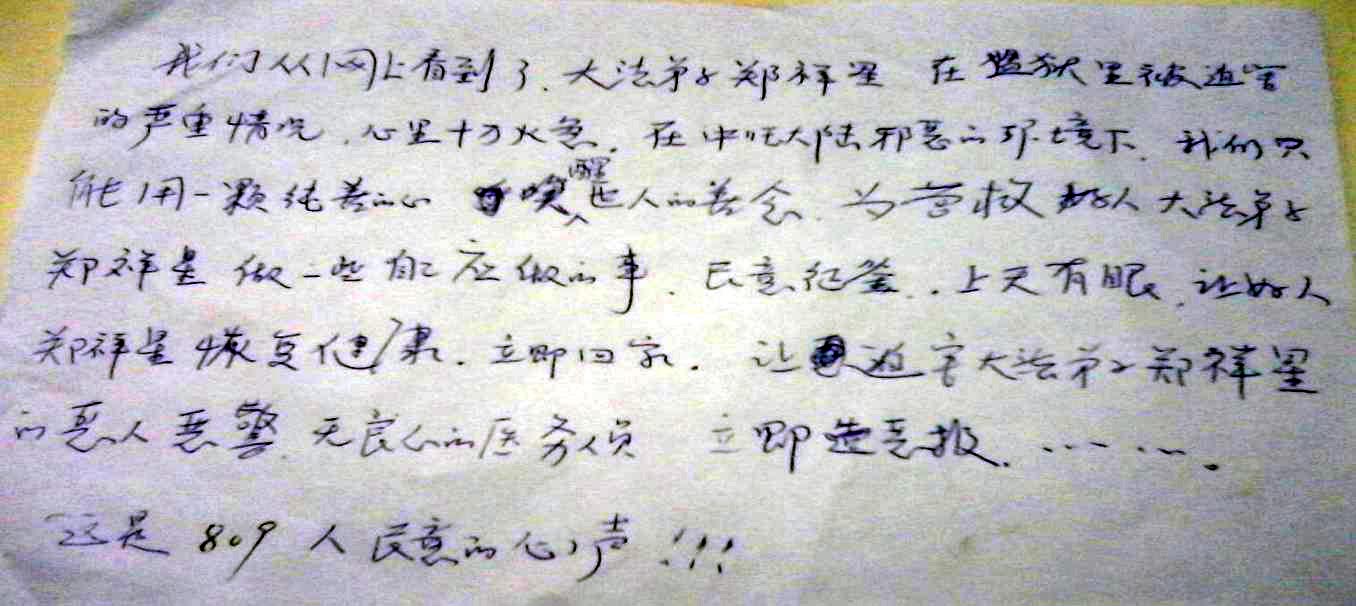 我们从网上看到了、大法弟子郑祥星 在监狱里被迫害
的严重情况、心里十万火急。在中国大陆邪恶的环境下、我们只
能用一颗纯善的心 唤醒世人的善念、为营救好人大法弟子
郑祥星 做一些自己应做的事、民意征签、上天有眼、让好人
郑祥星恢复健康、立即回家。让迫害大法弟子郑祥星
的恶人恶警、无良心的医务人员 立即遭恶报、……。
这是 809 人民意的心声!!!